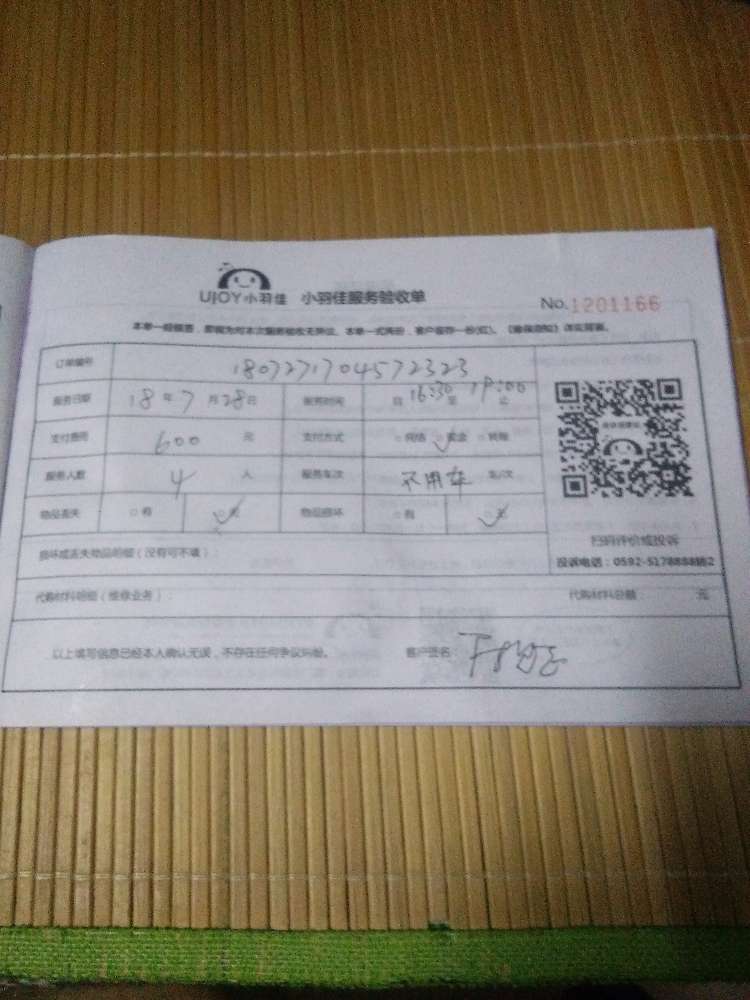 UJOY小羽佳 小羽佳服务验收单 No.1201166
本单一经签署，即视为对本次服务验收无异议。本单一式两份，客户留存一份(红)。
订单编号 1807271704572323
服务日期 18年7月28日 服务时间 自16:30至19:00止
支付费用 600元 支付方式 网络 现金 转账
服务人数 4人 服务车次 不用车 车/次
物品丢失 有 无 物品损坏 有 无
扫码评价或投诉
损坏或丢失物品明细（没有可不填）：
投诉电话：0592-5178888转2
代购材料明细（维修业务）： 代购材料总额 元
以上填写信息已经本人确认无误，不存在任何争议纠纷。 客户签名：